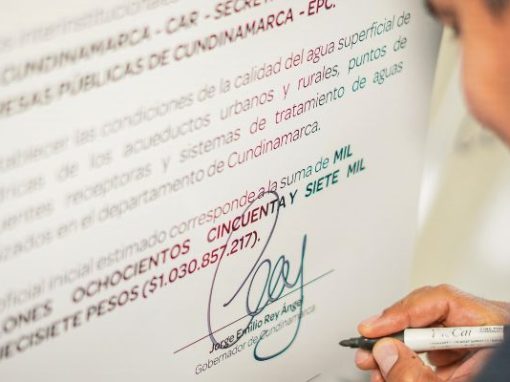 interinstitucional
CUNDINAMARCA - CAR - SECRET
RESAS PÚBLICAS DE CUNDINAMARCA - EPC.
stablecer las condiciones de la calidad del agua superficial de
de los acueductos urbanos y rurales, puntos de
entes receptoras y sistemas de tratamiento de aguas
izados en el departamento de Cundinamarca.
oficial inicial estimado corresponde a la suma de MIL
LONES OCHOCIENTOS CINCUENTA Y SIETE MIL
DIECISIETE PESOS ($1.030.857.217).
Jorge Emilio Rey Ángel
Gobernador de Cundinamarca